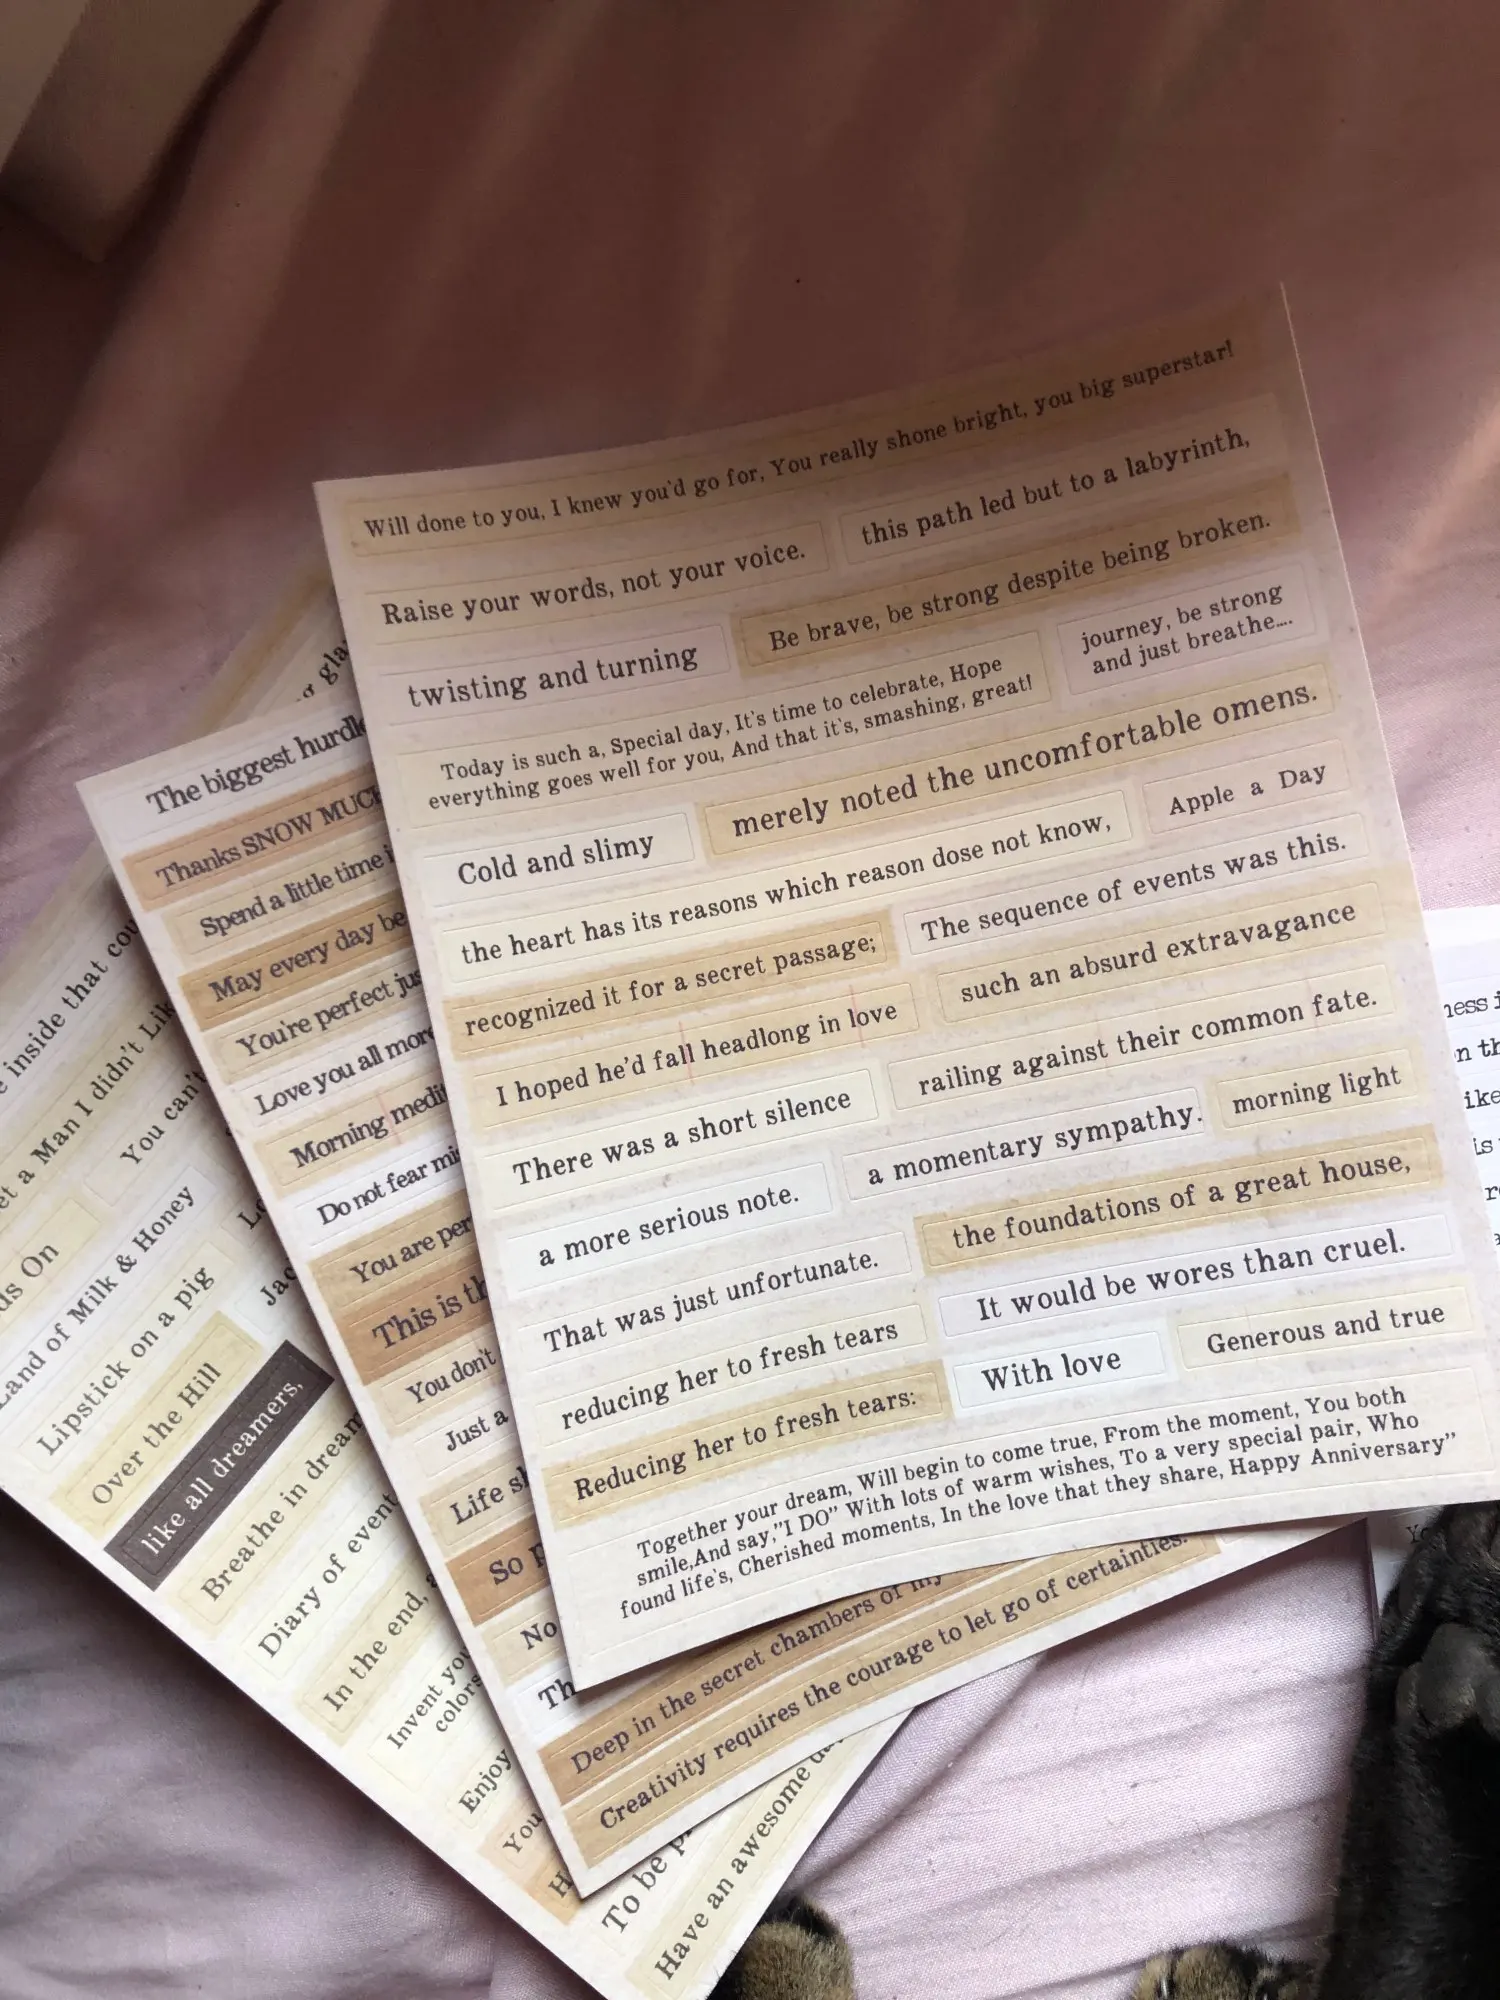 Will done to you, I knew you'd go for, You really shone bright, you big superstar!
Raise your words, not your voice.
this path led but to a labyrinth,
twisting and turning
Be brave, be strong despite being broken.
Today is such a, Special day, It's time to celebrate, Hope
everything goes well for you, And that it's, smashing, great!
journey, be strong
and just breathe....
Cold and slimy
merely noted the uncomfortable omens.
the heart has its reasons which reason dose not know,
Apple a Day
recognized it for a secret passage;
The sequence of events was this.
I hoped he'd fall headlong in love
such an absurd extravagance
There was a short silence
railing against their common fate.
a more serious note.
a momentary sympathy.
morning light
That was just unfortunate.
the foundations of a great house,
reducing her to fresh tears
It would be wores than cruel.
Reducing her to fresh tears:
With love
Generous and true
Together your dream, Will begin to come true, From the moment, You both
smile,And say,"I DO" With lots of warm wishes, To a very special pair, Who
found life's, Cherished moments, In the love that they share, Happy Anniversary"
The biggest
Thanks SNOW
Spend a little time
May every day be
You're perfect
Love you all more
Morning
Do not fear
You are
This is
You don't
Just a
Life
So
No
Deep in the secret chambers of
Creativity requires the courage to let go of certainties.
inside that
a Man I didn't
You can't
On
Land of Milk & Honey
Lipstick on a pig
Over the Hill
like all dreamers,
Breathe in
Diary of
In the end,
Invent
colors
Enjoy
You
To be
Have an awesome